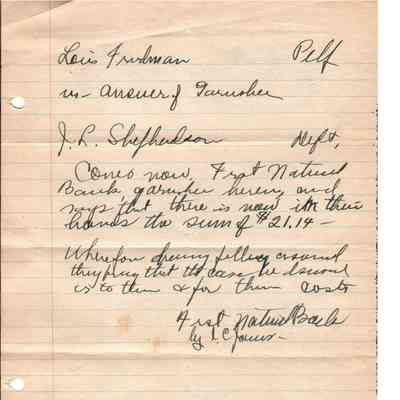 Louis Friedman Pelf
vs - Answer of Garnishee
J. L. Shepherdson Deft,
Comes now, First Natural
Bank garnishee herein and
says that there is now in their
hands the sum of $21.14 -
Wherefore having fully answered
they pray that the case be dismissed
as to them & for their costs
First Natural Bank
by L. C. Jones -